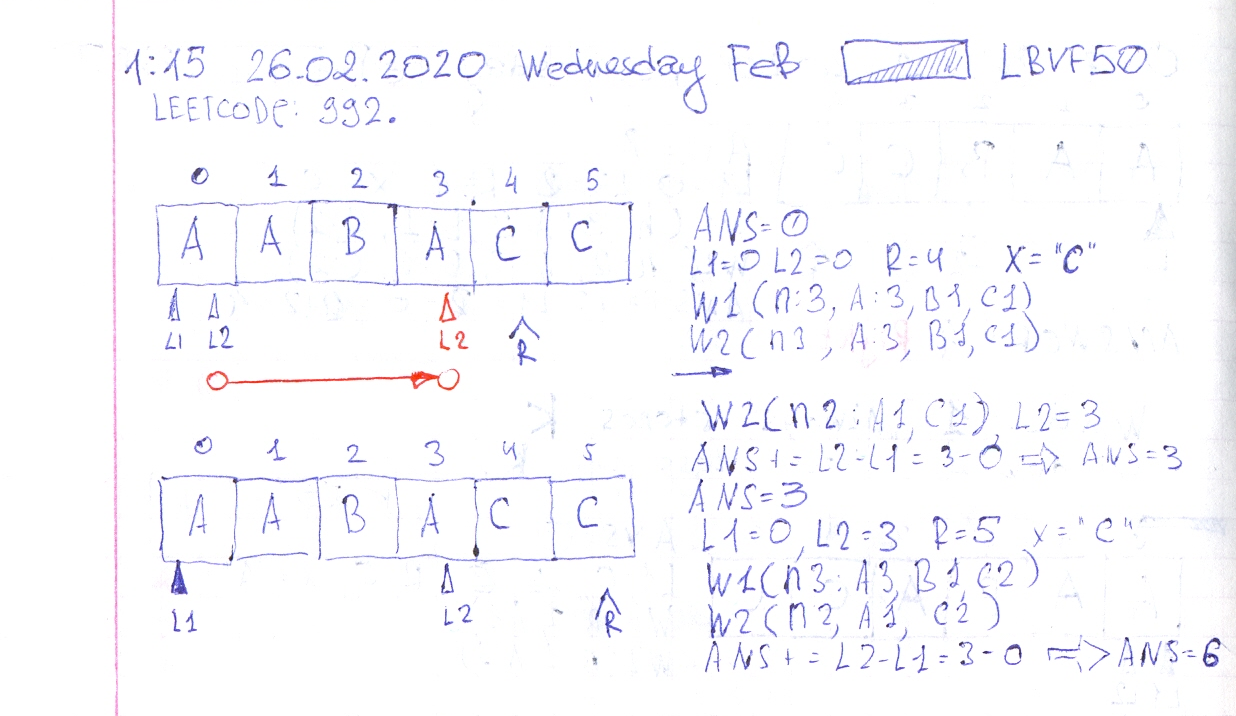 1:15 26.02.2020 Wednesday FeB LBVF50
LEETCODE: 992.
0 1 2 3 4 5
A A B A C C
L1 L2 L2 R
ANS=0
L1=0 L2=0 R=4 X="C"
W1(n:3, A:3, B1, C1)
W2(n3, A:3, B1, C1)
W2(n2: A1, C1), L2=3
ANS+=L2-L1=3-0 => ANS=3
ANS=3
0 1 2 3 4 5
A A B A C C
L1 L2 R
L1=0, L2=3 R=5 X="C"
W1(n3: A3, B1, C2)
W2(n2, A1, C2)
ANS+=L2-L1=3-0 => ANS=6